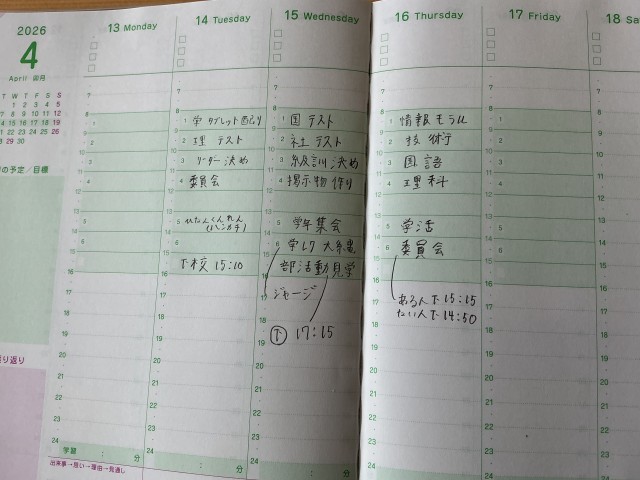 2026
4
April 卯月
T W T F S S
1 2 3 4 5
7 8 9 10 11 12
14 15 16 17 18 19
21 22 23 24 25 26
28 29 30
の予定/目標
り返り
13 Monday
14 Tuesday
15 Wednesday
16 Thursday
17 Friday
18 Sa
1 学 タブレット配り
2 理 テスト
3 リーダー決め
4 委員会
5 ひなんくんれん
(ハンカチ)
6
下校 15:10
1 国 テスト
2 社 テスト
3 級訓 決め
4 掲示物 作り
5 学年集会
6 学レク 大縄
部活動見学
ジャージ
下 17:15
1 情報モラル
2 技術
3 国語
4 理科
5 学活
6 委員会
ある人下 15:15
ない人下 14:50
学習 : 分
: 分
: 分
: 分
出来事→思い→理由→見通し